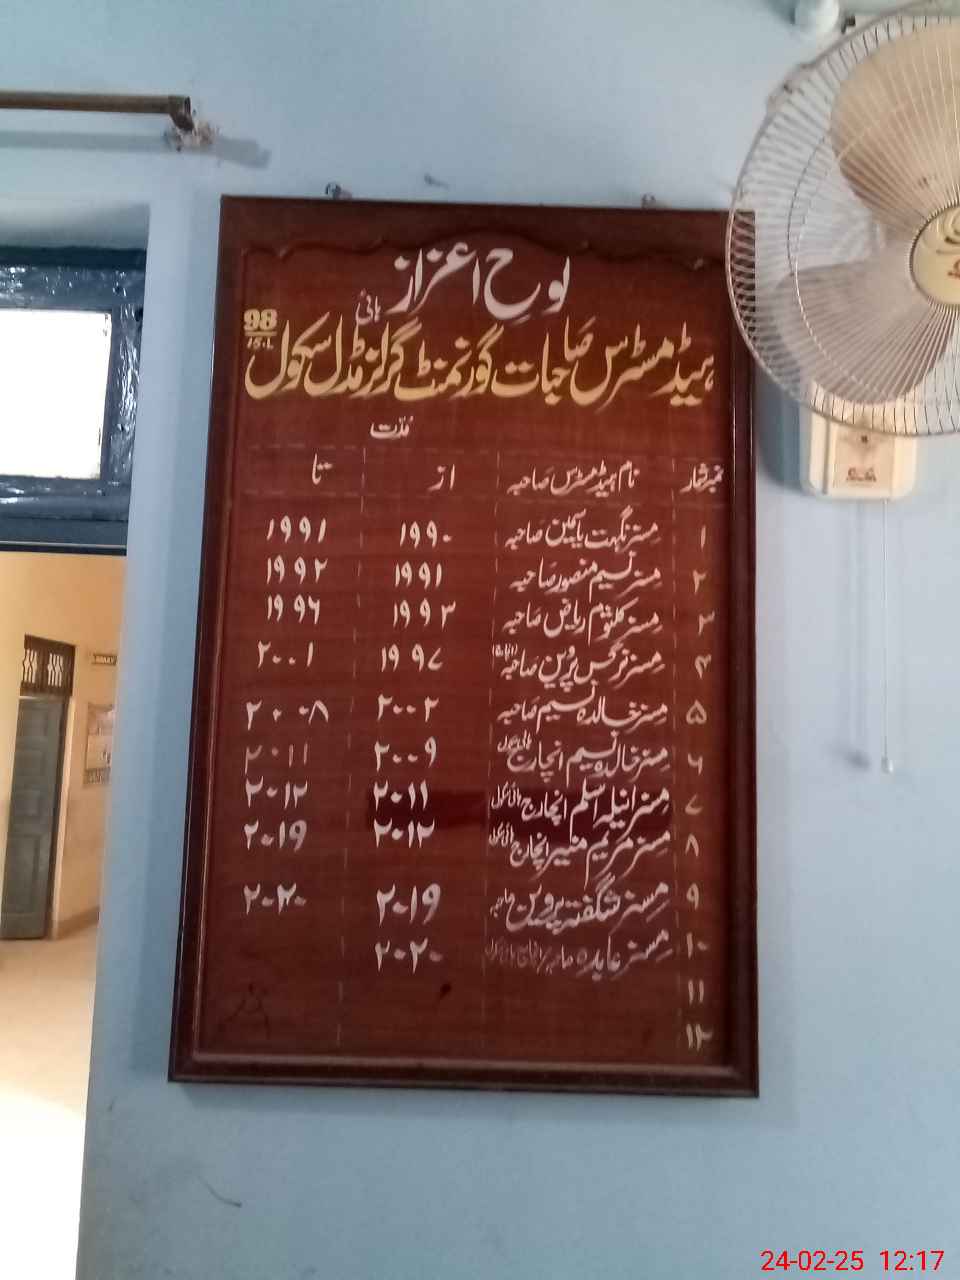 لوحِ اعزاز
ہائی
ہیڈ مسٹرس صاحبات گورنمنٹ گرلز مڈل سکول 98/15.L
مُدّت
نمبر شمار نام ہیڈ مسٹرس صاحبہ از تا
۱ مسز نگہت یاسمین صاحبہ ۱۹۹۰ ۱۹۹۱
۲ مسز نسیم منصور صاحبہ ۱۹۹۱ ۱۹۹۲
۳ مسز کلثوم ریاض صاحبہ ۱۹۹۳ ۱۹۹۶
۴ مسز نرگس پروین صاحبہ ۱۹۹۷ ۲۰۰۱
۵ مسز خالدہ نسیم صاحبہ ۲۰۰۲ ۲۰۰۸
۶ مسز خالدہ نسیم انچارج ہائی سکول ۲۰۰۹ ۲۰۱۱
۷ مسز انیلہ اسلم انچارج ہائی سکول ۲۰۱۱ ۲۰۱۲
۸ مسز مریم منیر انچارج ہائی سکول ۲۰۱۲ ۲۰۱۹
۹ مسز شگفتہ پروین صاحبہ ۲۰۱۹ ۲۰۲۰
۱۰ مسز عابدہ صابر انچارج ہائی سکول ۲۰۲۰
۱۱
۱۲
24-02-25 12:17